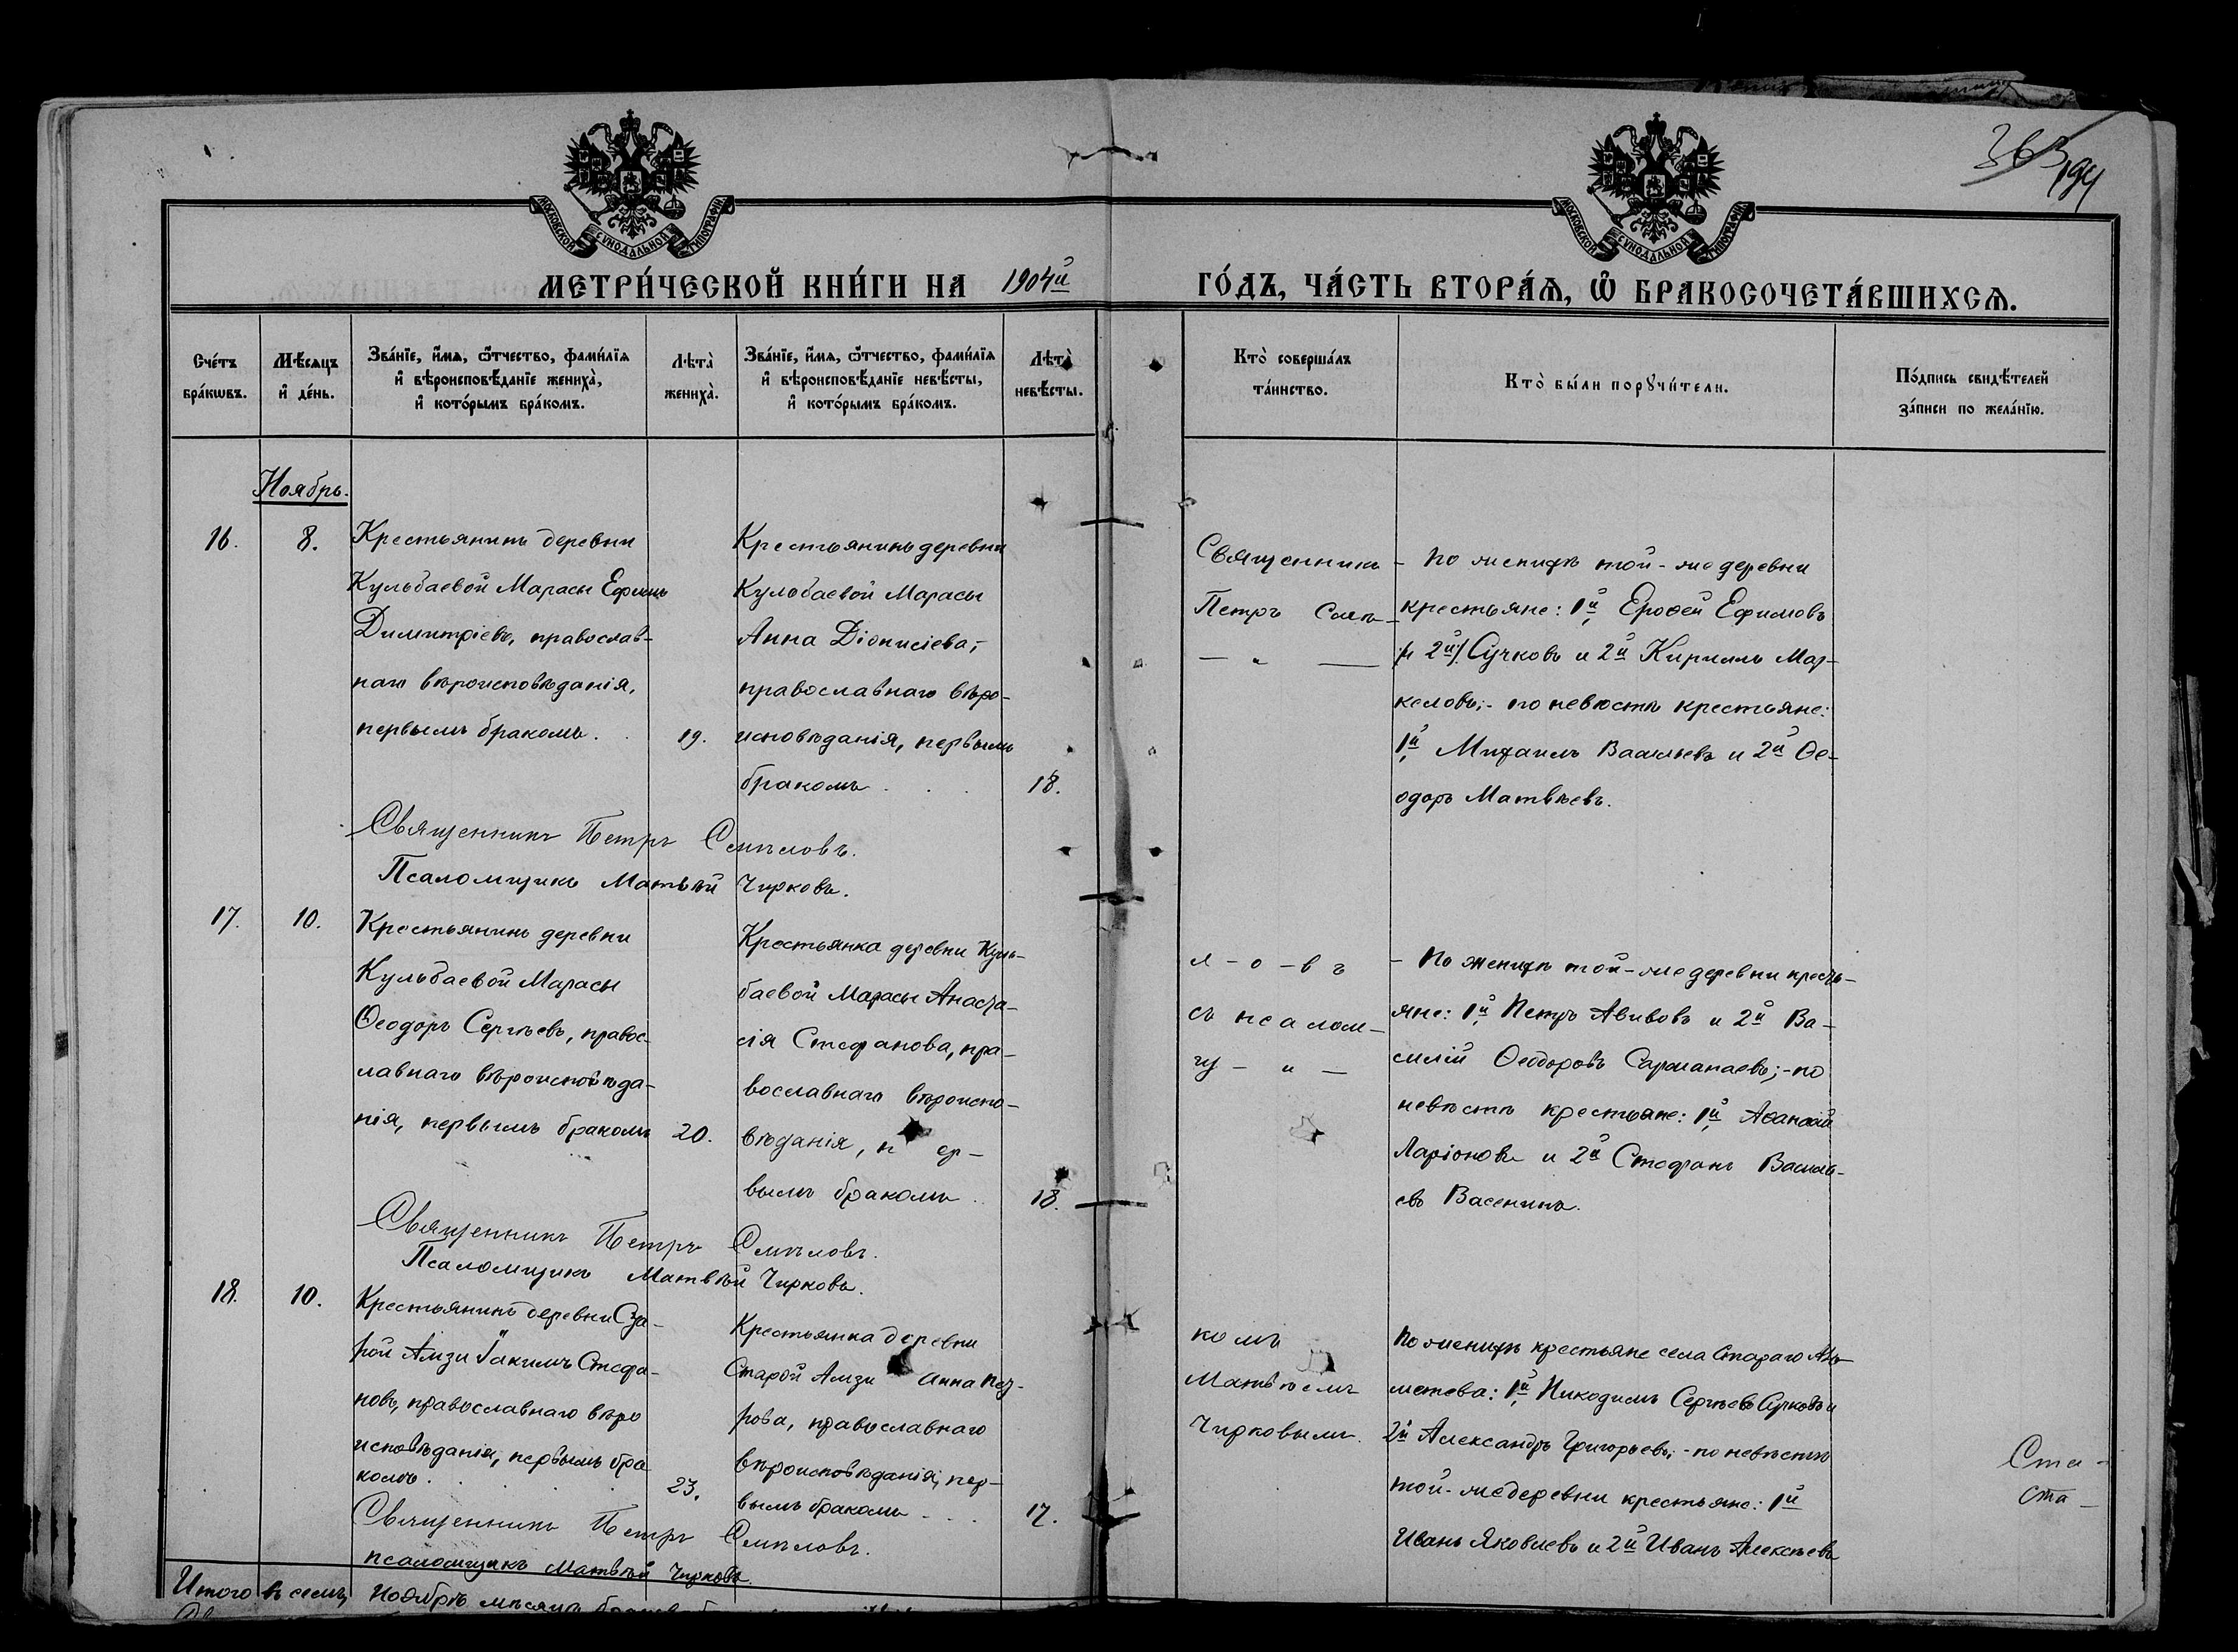 363
194
МОСКОВСКОЙ СѴНОДАЛЬНОЙ ТИПОГРАФІИ
МОСКОВСКОЙ СѴНОДАЛЬНОЙ ТИПОГРАФІИ
МЕТРИ́ЧЕСКОЙ КНИ́ГИ НА 1904й ГО́ДЪ, ЧА́СТЬ ВТОРА́Ѧ, Ѽ БРАКОСОЧЕТА́ВШИХСѦ.
Сче́тъ
бра́кѡвъ.
Мѣ́сяцъ
и҆ де́нь.
Зва́нїе, и҆́мѧ, ѻ҆́тчество, фами́лїѧ
и҆ вѣроисповѣ́данїе жениха̀,
и҆ кото́рымъ бра́комъ.
Лѣта̀
жениха̀.
Зва́нїе, и҆́мѧ, ѻ҆́тчество, фами́лїѧ
и҆ вѣроисповѣ́данїе невѣ́сты,
и҆ кото́рымъ бра́комъ.
Лѣта̀
невѣ́сты.
Кто̀ соверша́лъ
та́инство.
Кто̀ бы́ли порꙋчи́тели.
По́дпись свидѣ́телей
за́писи по жела́нїю.
Ноябрь.
16.
8.
Крестьянинъ деревни
Кульбаевой Марасы Ефимъ
Димитріевъ, православ-
наго вѣроисповѣданія,
первымъ бракомъ.
19.
Крестьянинъ деревни
Кульбаевой Марасы
Анна Діонисіева,-
православнаго вѣро-
исповѣданія, первымъ
бракомъ
18.
Священникъ
Петръ Смѣ-
- По женихѣ той-же деревни
крестьяне: 1й, Ерофей Ефимовъ
/и 2й/ Сучковъ и 2й Кириллъ Мар-
келовъ;- по невѣстѣ крестьяне:
1й, Михаилъ Васильевъ и 2й Ѳе-
одоръ Матвѣевъ.
Священникъ Петръ Смѣловъ.
Псаломщикъ Матвѣй Чирковъ.
17.
10.
Крестьянинъ деревни
Кульбаевой Марасы
Ѳеодоръ Сергѣевъ, правос-
лавнаго вѣроисповѣда-
нія, первымъ бракомъ
20.
Крестьянка деревни Куль-
баевой Марасы Анаста-
сія Стефанова, пра-
вославнаго вѣроиспо-
вѣданія, п ер-
вымъ бракомъ
18.
л - о - в ъ
съ псалом-
щ - и -
- По женихѣ той-же деревни кресть-
яне: 1й, Петръ Авивовъ и 2й Ва-
силій Ѳеодоровъ Сарманаевъ;- по
невѣстѣ крестьяне: 1й, Аѳанасій
Ларіоновъ и 2й Стефанъ Василь-
евъ Васенинъ.
Священникъ Петръ Смѣловъ.
Псаломщикъ Матвѣй Чирковъ.
18.
10.
Крестьянинъ деревни Ста-
рой Амзи Іакимъ Стефа-
новъ, православнаго вѣро
исповѣданія, первымъ бра
комъ.
23.
Крестьянка деревни
Старой Амзи Анна Пет-
рова, православнаго
вѣроисповѣданія, пер-
вымъ бракомъ
17.
комъ
Матвѣемъ
Чирковымъ.
По женихѣ крестьяне села Стараго Аль-
метева: 1й, Никодимъ Сергѣевъ Сучковъ и
2й Александръ Григорьевъ;- по невѣстѣ
той-же деревни крестьяне: 1й
Иванъ Яковлевъ и 2й Иванъ Алексѣевъ
Ста-
Ста-
Священникъ Петръ Смѣловъ.
Псаломщикъ Матвѣй Чирковъ.
Итого въ семъ Ноябрѣ мѣсяцѣ